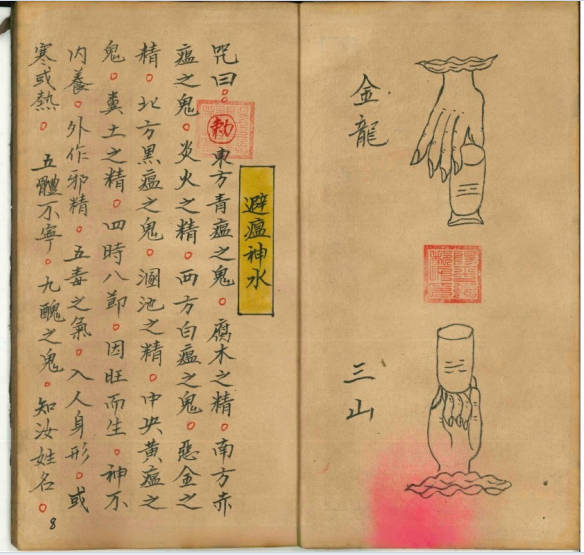 金龍
三山
避瘟神水
咒曰。勅東方青瘟之鬼。腐木之精。南方赤
瘟之鬼。炎火之精。西方白瘟之鬼。惡金之
精。北方黑瘟之鬼。溷池之精。中央黃瘟之
鬼。糞土之精。四時八節。因旺而生。神不
内養。外作邪精。五毒之氣。入人身形。或
寒或熱。五體不寧。九醜之鬼。知汝姓名。
8